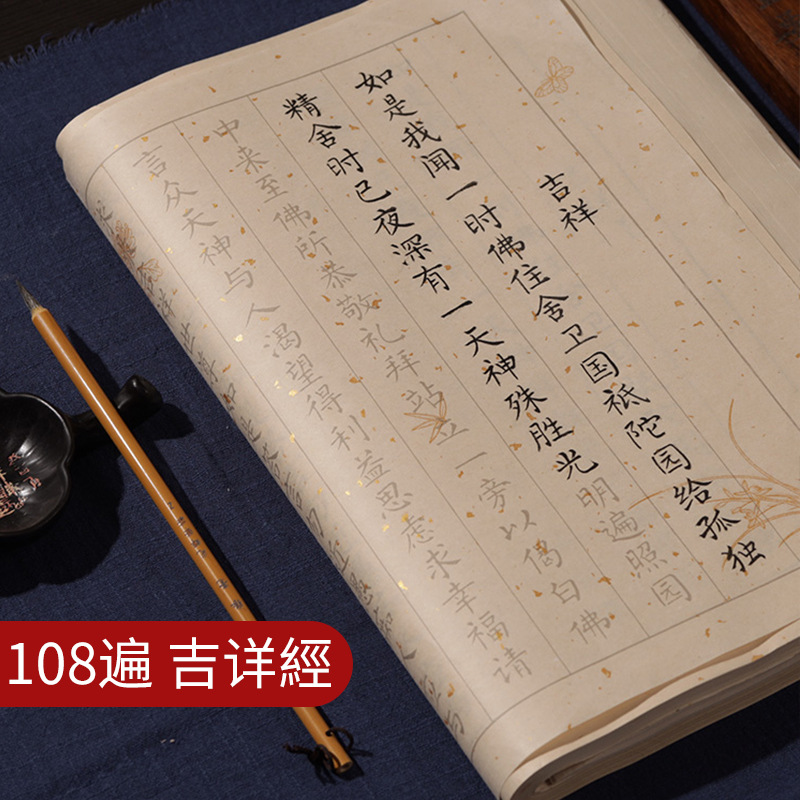 吉祥
如是我闻一时佛住舍卫国祗陀园给孤独
精舍时已夜深有一天神殊胜光明遍照园
中来至佛所恭敬礼拜站立一旁以偈白佛
言众天神与人渴望得利益思虑求幸福请
108遍 吉详經